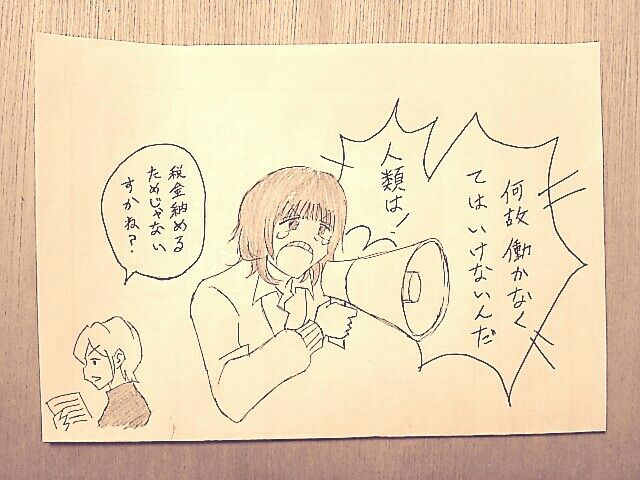 人類は!
何故働かなく
てはいけないんだ
税金納める
ためじゃない
すかね?